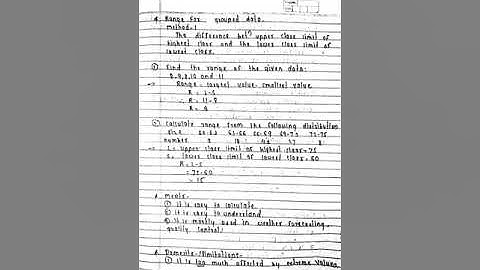 * Range for grouped data.
method-1
The difference betn upper class limit of
highest class and the lower class limit of
lowest class.
① Find the range of the given data:
8,9,10 and 11
→ Range = largest value - smallest value
R = L-S
∴ R = 11-8
R =
② Calculate range from the following distribution
size 60-63 63-66 66-69 69-72 72-75
number
→ L = upper class limit of highest class = 75
S = lower class limit of lowest class = 60
R = L-S
= 75-60
= 15
* merits-
① It is easy to calculate.
② It is easy to understand.
③ It is mostly used in weather forecasting,
quality control.
* Demerits/limitations-
① It is too much affected by extreme values